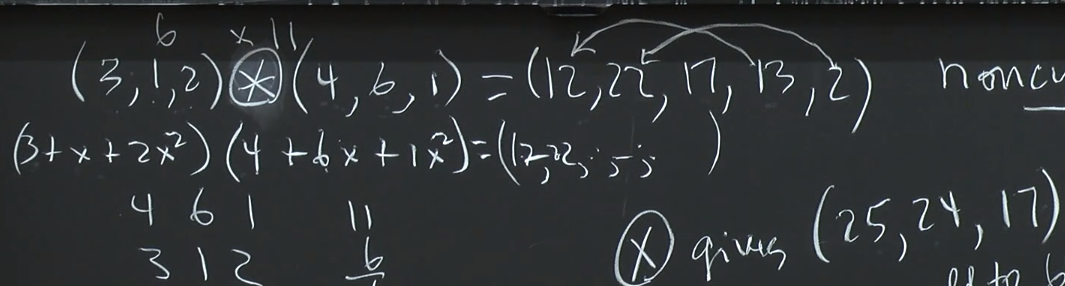 6 x 11
(3, 1, 2) ⊛ (4, 6, 1) = (12, 22, 17, 13, 2)
(3 + x + 2x²) (4 + 6x + 1x²) = (12, 22, , , )
4 6 1 11
3 1 2 6
ⓧ gives (25, 24, 17)